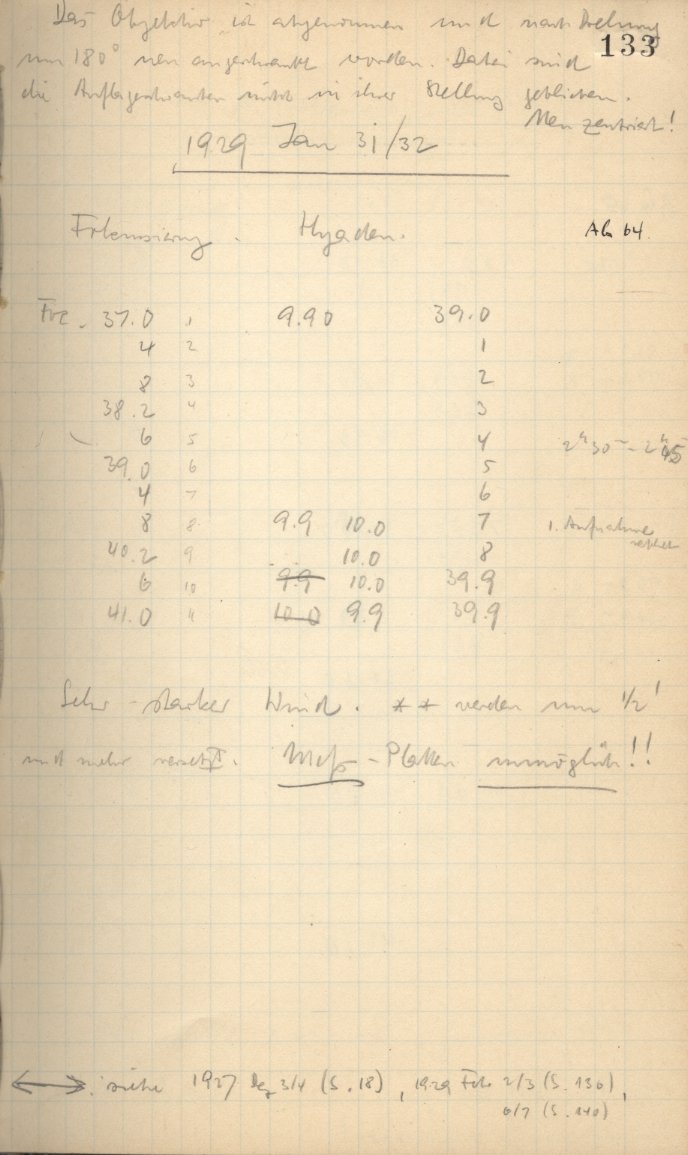 133
Das Objektiv ist abgenommen und nach Drehung
um 180° neu angeschraubt worden. Dabei sind
die Auflageschrauben nicht in ihrer Stellung geblieben.
Neu zentriert!
1929 Jan 31/32
Fokussierung. Hyaden. Ab 64.
Foc. 37.0 1 9.90 39.0
4 2 1
8 3 2
38.2 4 3
6 5 4 2h30m - 2h45
39.0 6 5
4 7 6
8 8 9.9 10.0 7 1. Aufnahme
40.2 9 10.0 8
6 10 9.9 10.0 39.9
41.0 11 10.0 9.9 39.9
Sehr starker Wind. ** werden um 1/2'
und mehr versetzt. Meß-Platten unmöglich!!
siehe 1927 Dez 3/4 (S. 18), 1929 Feb 2/3 (S. 136),
6/7 (S. 140)